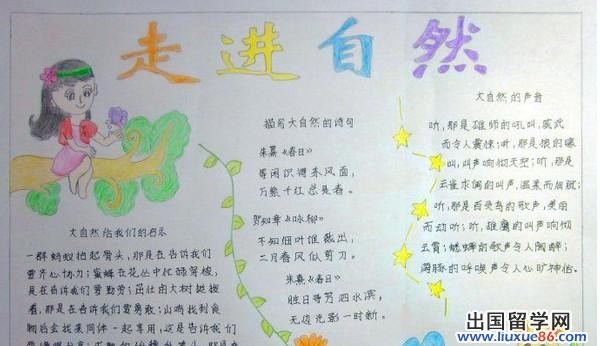 走进自然
大自然给我们的启示
一群蚂蚁抬起骨头,那是在告诉我们
要齐心协力;蜜蜂在花丛中忙碌穿梭,
是在告诉我们要勤劳;茁壮的大树挺拔
着,那是在告诉我们要勇敢;山鸡找到食
物后会找来同伴一起享用,这是告诉我们
描写大自然的诗句
朱熹《春日》
等闲识得东风面,
万紫千红总是春。
贺知章《咏柳》
不知细叶谁裁出,
二月春风似剪刀。
朱熹《春日》
胜日寻芳泗水滨,
无边光影一时新。
大自然的声音
听,那是雄狮的吼叫,威武
而令人震惊;听,那是狼的嚎
叫,叫声响彻天空;听,那是
云雀求偶的叫声,温柔而细腻;
听,那是百灵鸟的歌声,美丽
而动听;听,雄鹰的叫声响彻
云霄;蟋蟀的歌声令人陶醉;
海豚的呼唤声令人心旷神怡。
出国留学网
www.liuxue86.com